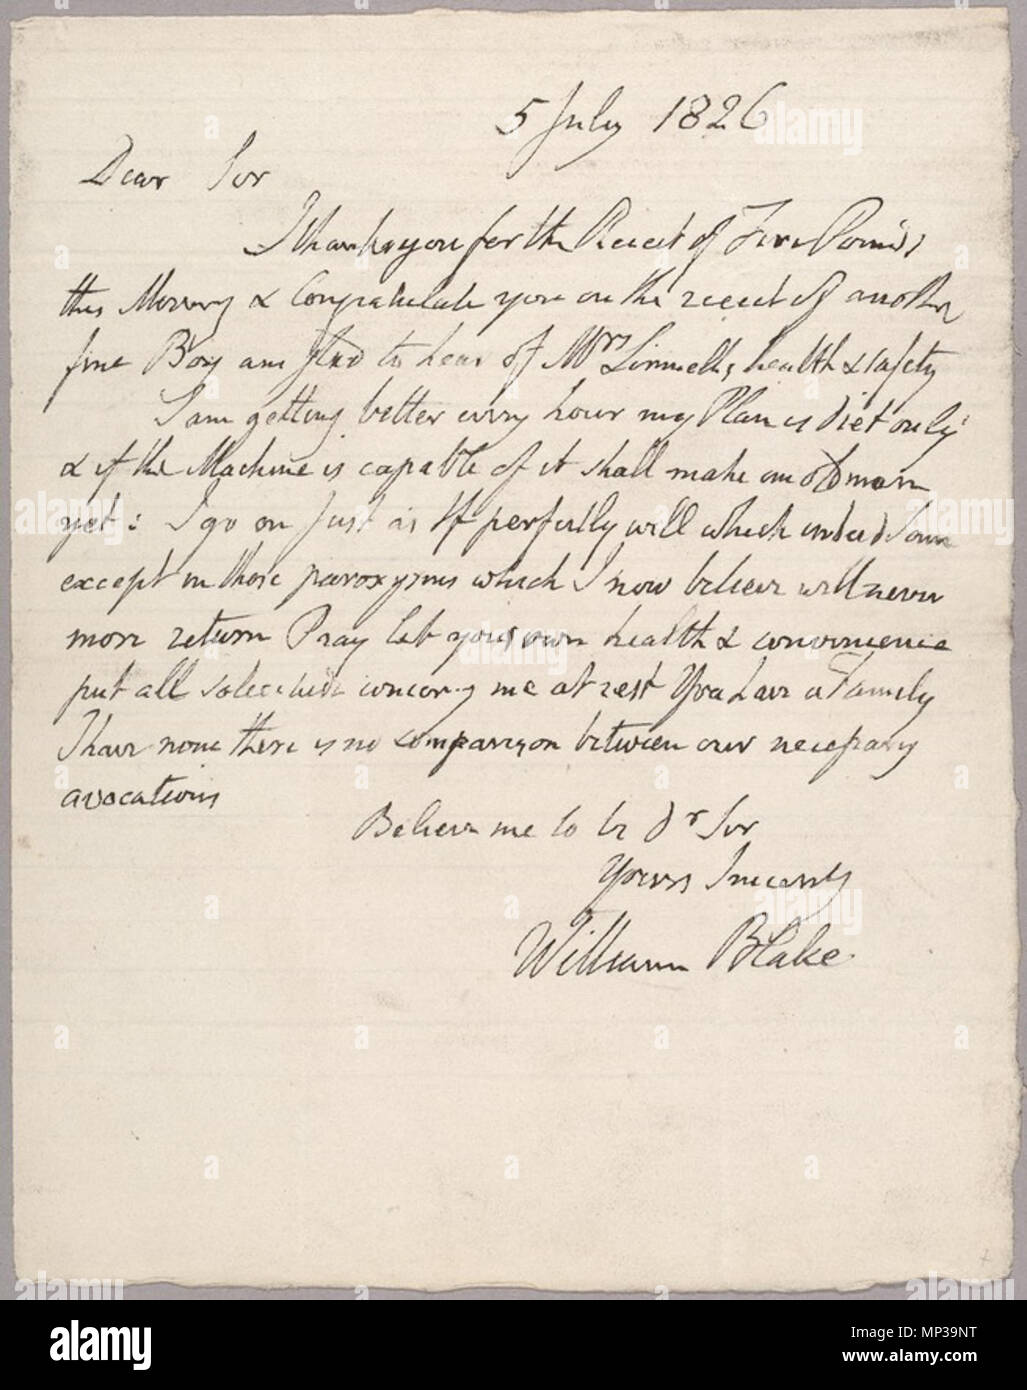 5 July 1826
Dear Sir
I thank you for the Receit of Five Pounds
this Morning & Congratulate you on the receit of another
fine Boy am glad to hear of Mrs Linnells health & safety
I am getting better every hour my Plan is diet only
& if the Machine is capable of it shall make an old man
yet: I go on just as if perfectly well which indeed I am
except in those paroxysms which I now believe will never
more return Pray let your own health & convenience
put all solicitude concerng me at rest You have a Family
I have none there is no comparison between our necessary
avocations
Believe me to be Dr Sir
Yours Sincerely
William Blake
alamy
Image ID: MP39NT
www.alamy.com